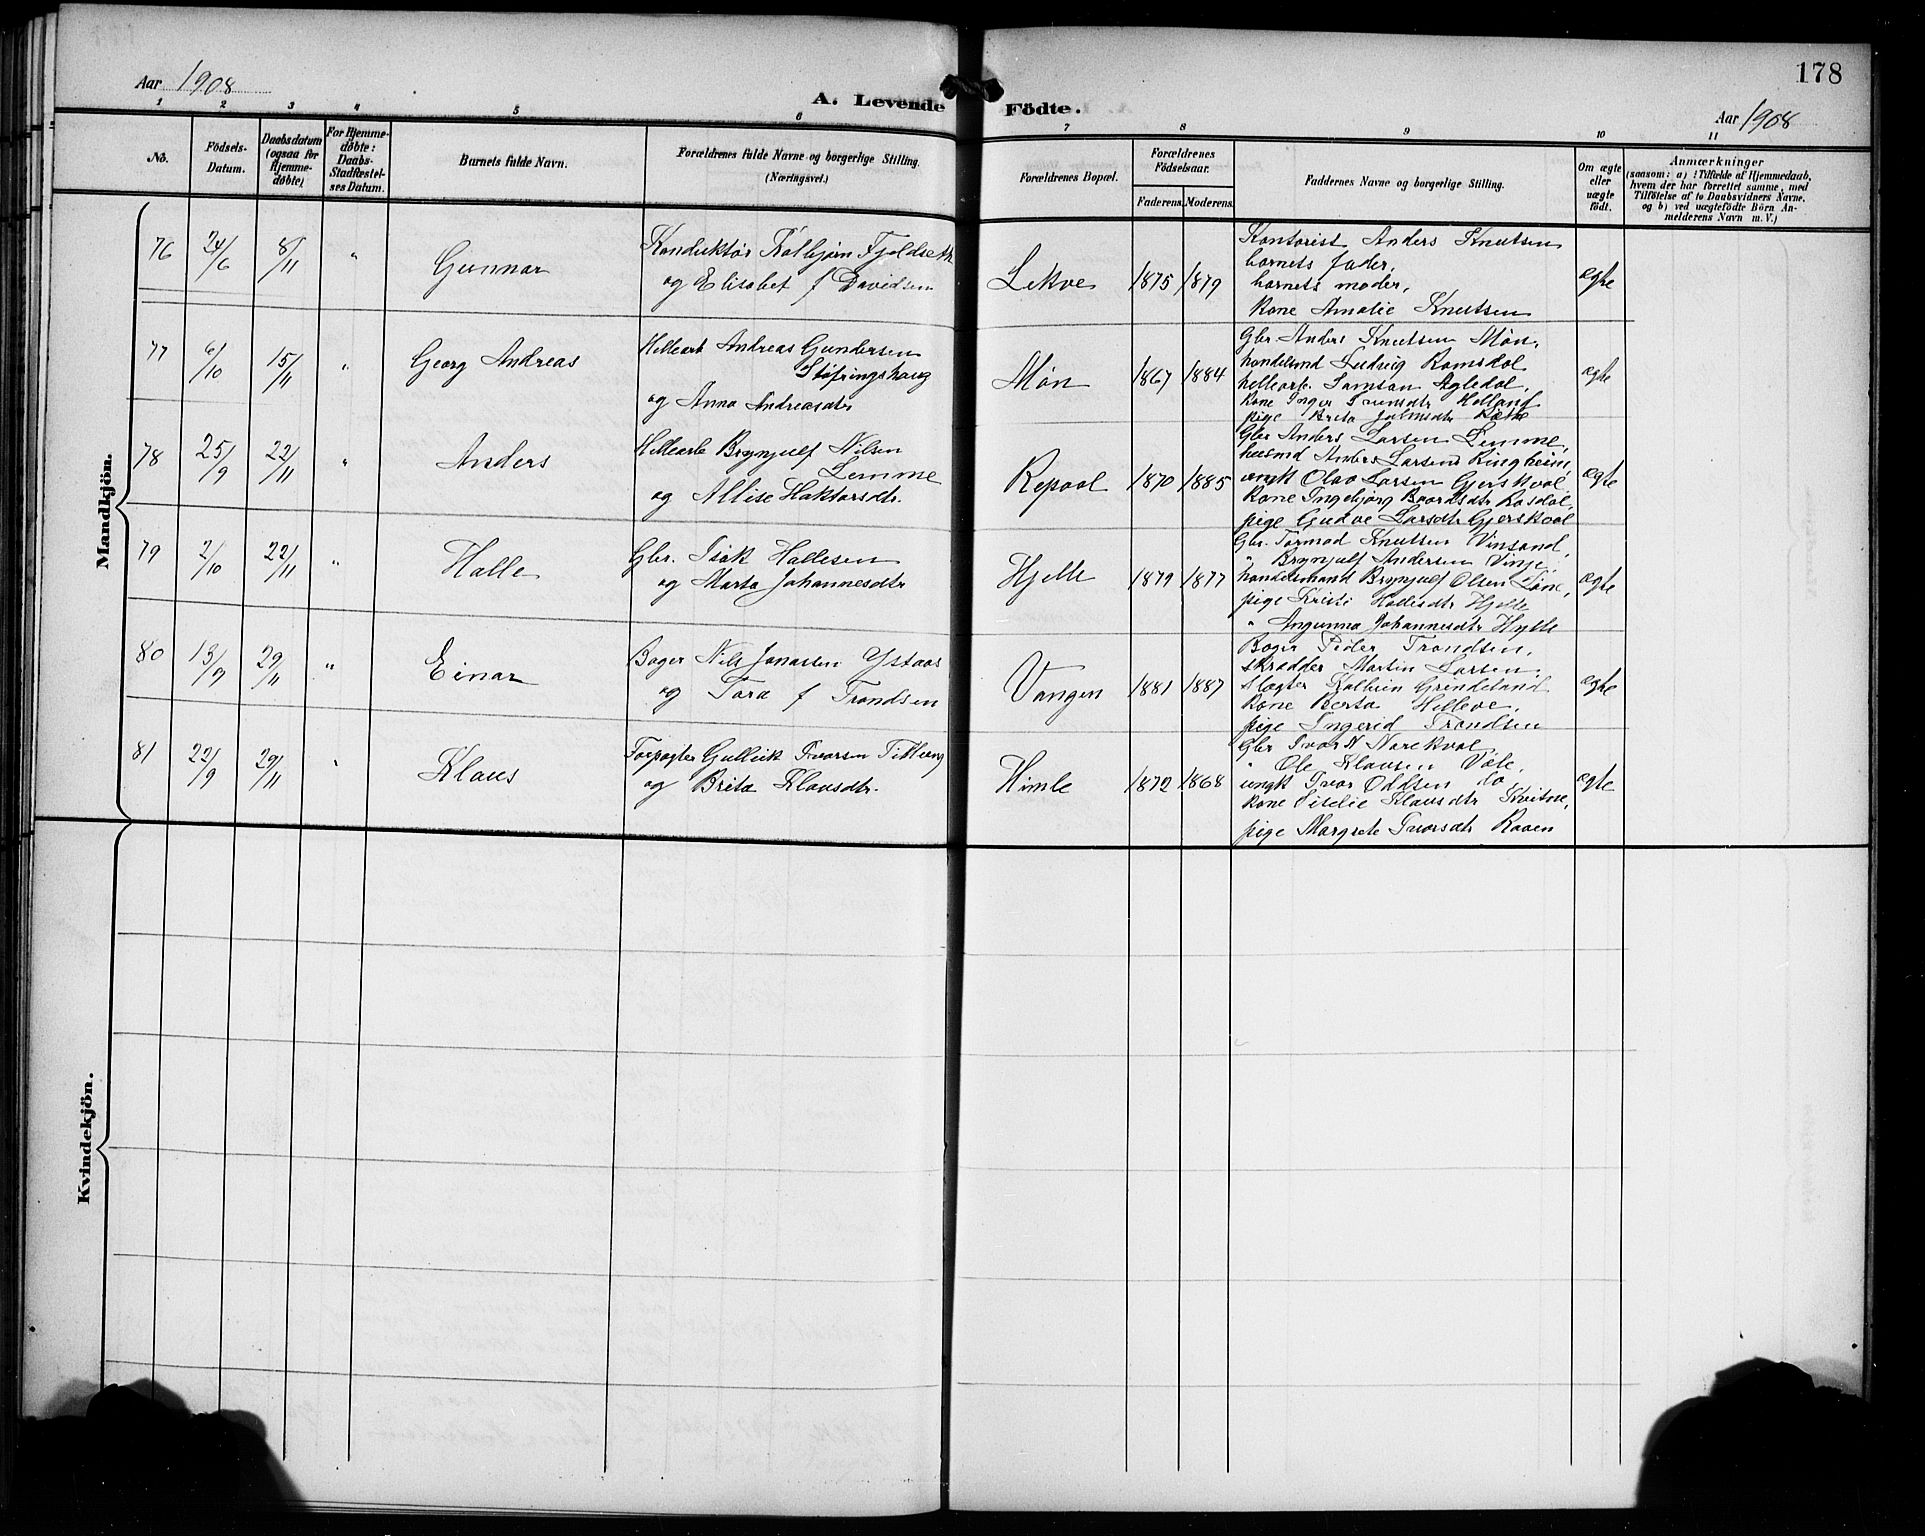 178
Aar 1908
Aar 1908
A. Levende Födte.
1 2 3 4 5 6 7 8 9 10 11
No.
Födsels-Datum.
Daabsdatum (ogsaa for Hjemme-döbte)
For Hjemme-döbte: Daabs-Stadfæstel-ses Datum.
Barnets fulde Navn.
Forældrenes fulde Navne og borgerlige Stilling.
(Næringsvei.)
Forældrenes Bopæl.
Forældrenes Födselsaar.
Faderens. Moderens.
Faddernes Navne og borgerlige Stilling.
Om ægte eller uægte födt.
Anmærkninger
(saasom: a) i Tilfælde af Hjemmedaab,
hvem der har forrettet samme, med
Tilföielse af to Daabsvidners Navne,
og b) ved uægtefödte Börn An-
melderens Navn m. V.)
Mandkjön.
76 24/6 8/11 " Gunnar
Konduktör Kolbjörn Fjeldseth
og Elisabet f Davidsen
Lekve 1875 1879
Kontorist Anders Knutsen
barnets fader,
barnets moder,
Kone Amalie Knutsen
ægte
77 6/10 15/11 " Georg Andreas
Hellearb Andreas Gundersen
Stöfringshaug
og Anna Andreasdtr
Møn 1867 1884
Gbr. Anders Knutsen Møn,
handelsmd Ludvig Ramsdal
hellearb. Samson Agledal,
Kone Inger Iversdtr Helland
pige Brita
ægte
78 25/9 22/11 " Anders
Hellearb Brynjulf Nilsen
Lemme
og Allise Haktorsdtr.
Repaal 1870 1885
Gbr Anders Larsen Lemme,
husmd Anders Larsen Ringheim,
ungk Olav Larsen Gjerskval
Kone Ingebjörg Baardsdtr Rasdal,
pige Gudve Larsdtr Gjerskval
ægte
79 2/10 22/11 " Halle
Gbr. Isak Hallesen
og Marta Johannesdtr
Hjelle 1879 1877
Gbr. Tormod Knutsen Vinsand,
" Brynjulf Andersen Vinje,
handelsmand Brynjulf Olsen Løne,
pige Kristi Hallesdtr Hjelle
" Angunna Johannesdtr Hylle
ægte
80 13/9 29/11 " Einar
Bager Nils Jonassen Ystaas
og Tora f Trondsen
Vangen 1881 1887
Bager Peder Trondsen,
skrædder Martin Larsen,
slagter Kolbein Grindeland
Kone Berta Helleve,
pige Ingerid Trondsen
ægte
81 22/9 29/11 " Klaus
Forpagter Gulleik Ivarsen
og Brita Klausdtr.
Himle 1872 1868
Gbr Ivar N Norekval
" Ole Klausen Væle,
ungk Ivar Oddsen do
Kone Siselie Klausdtr Kvitne,
pige Margrete Ivarsdtr Raaen
ægte
Kvindekjön.